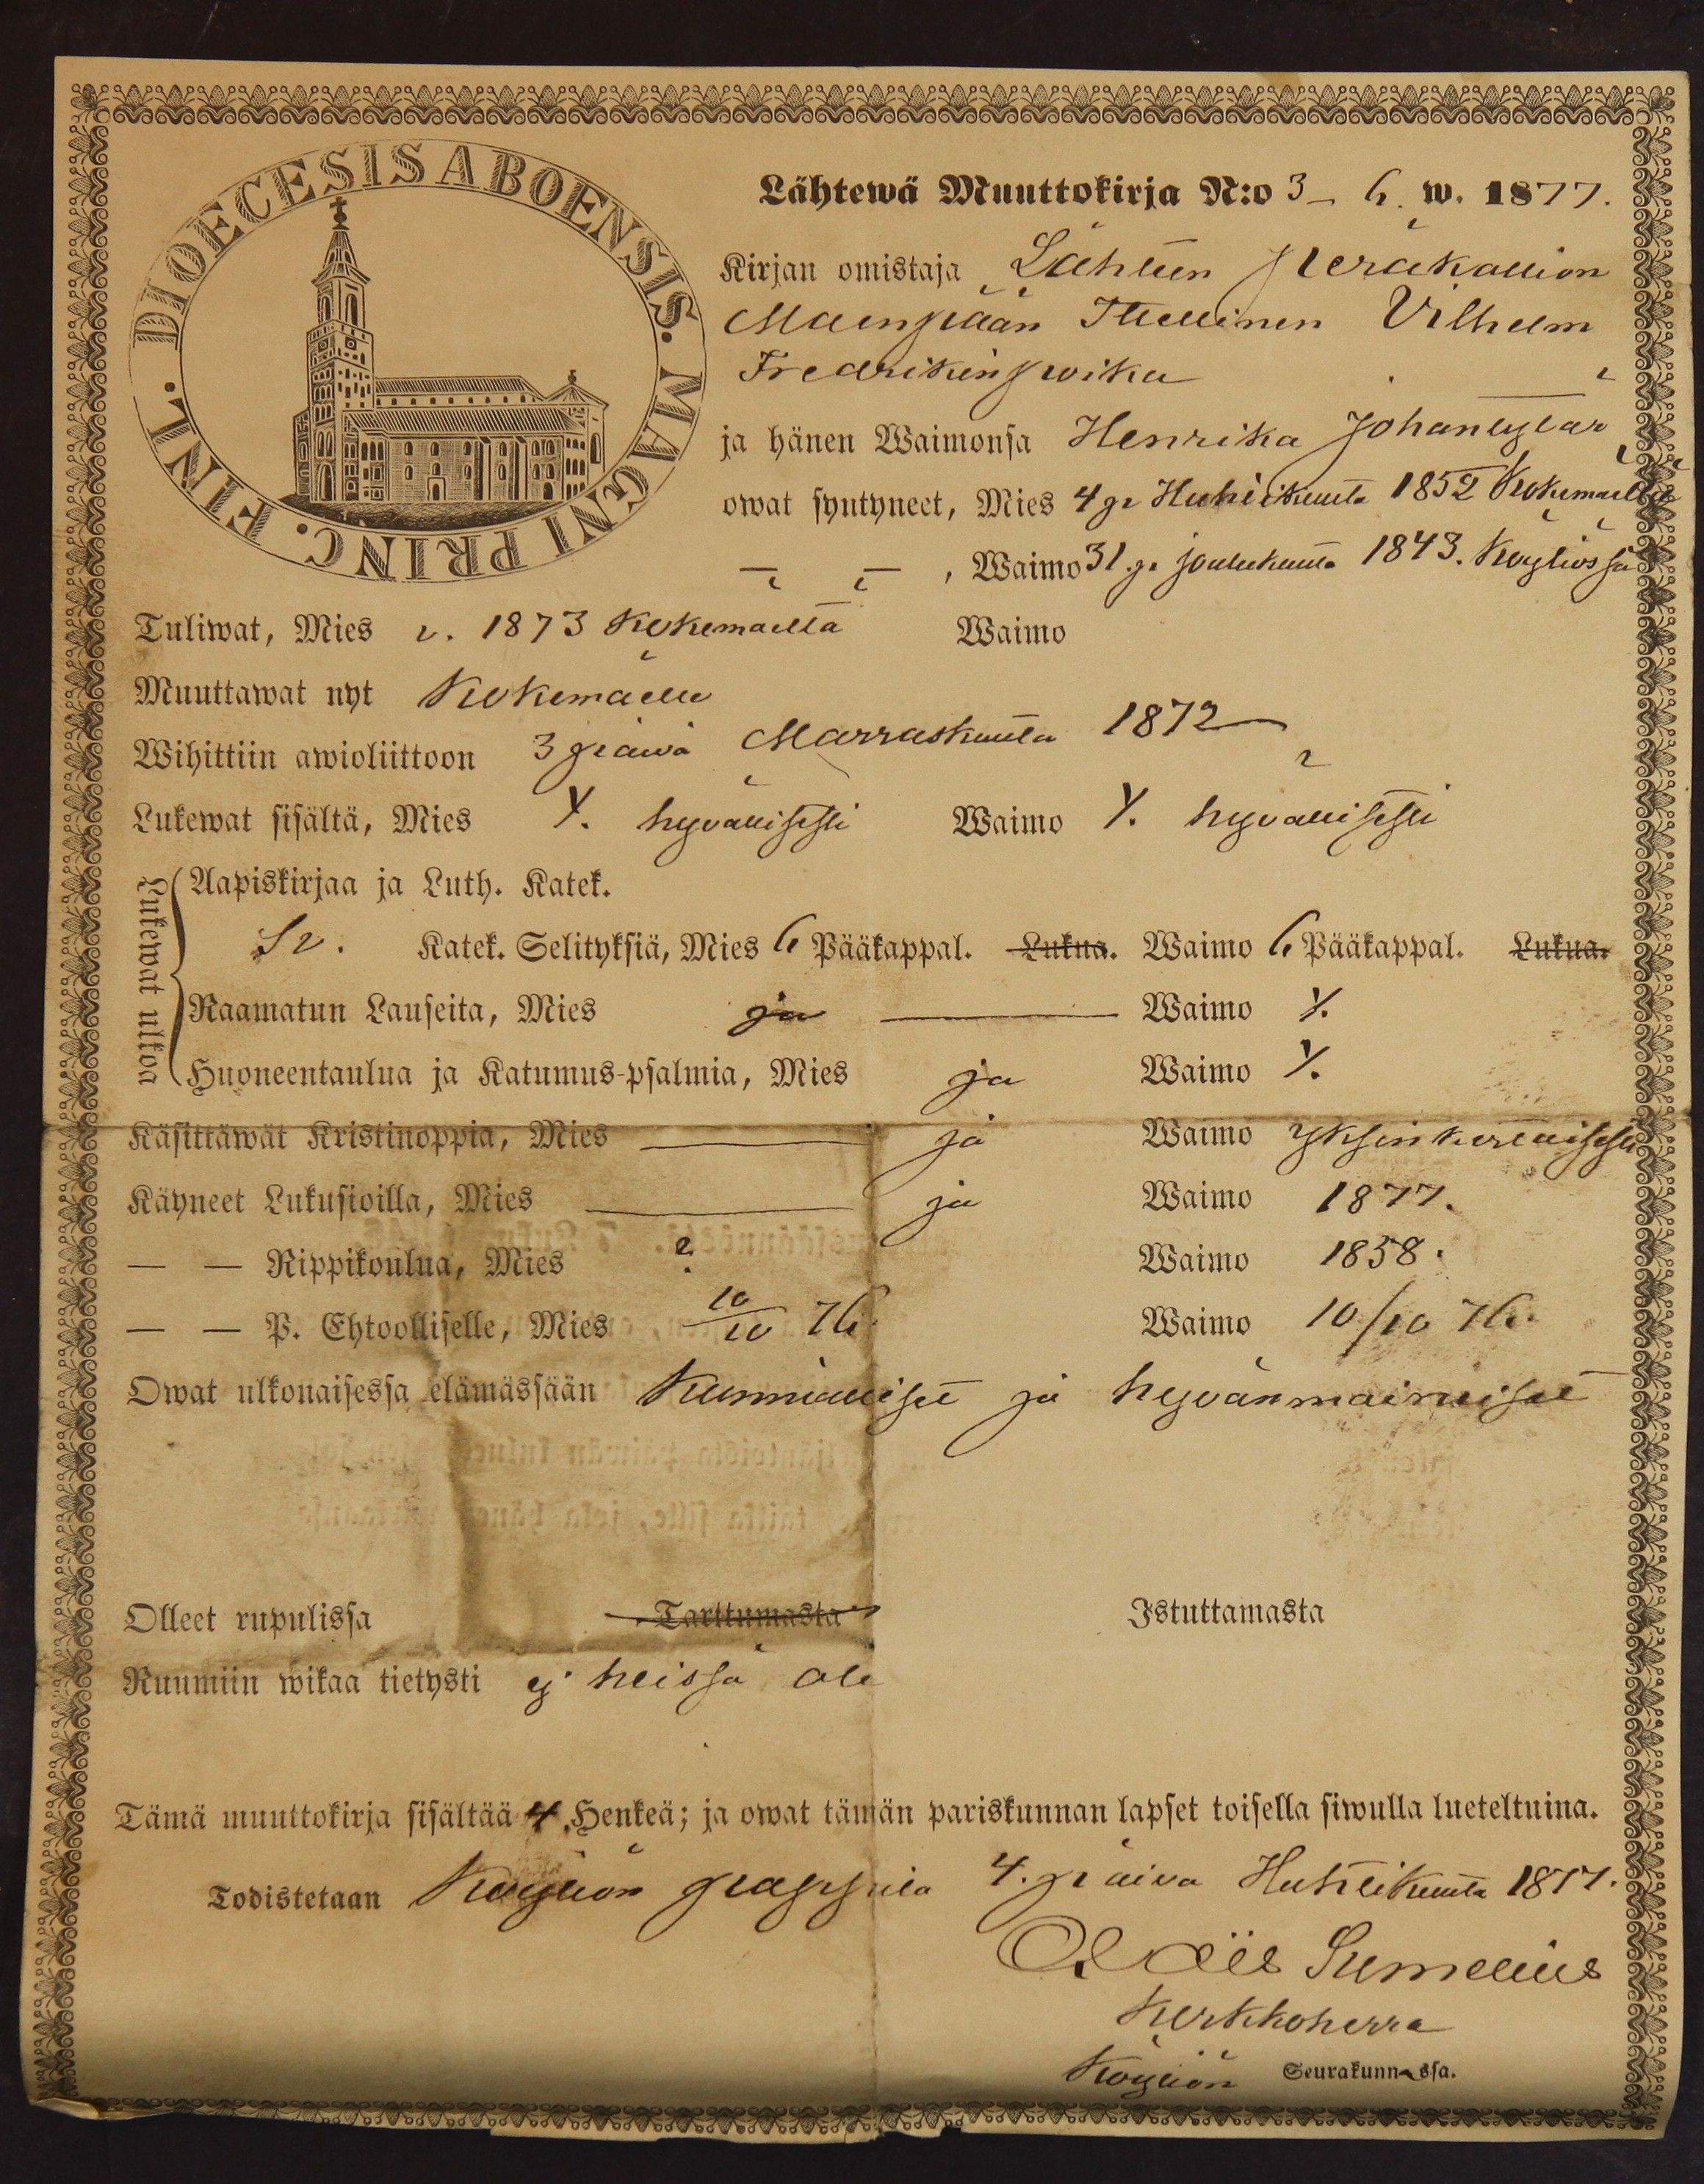 DIOECESIS ABOENSIS. MAGNI PRINC. FINL.
Lähtewä Muuttokirja N:o 3 – 6. w. 1877.
Kirjan omistaja Lähteen Peräkallion
Maenpään Itsellinen Vilhelm
Fredrikinpoika
ja hänen Waimonsa Henrika Johantytär
owat syntyneet, Mies 4 p: Huhtikuuta 1852 Kokemaella
— — , Waimo 31 p: joulukuuta 1843. Köyliössä
Tuliwat, Mies v. 1873 Kokemaeltä Waimo
Muuttawat nyt Kokemäelle
Wihittiin awioliittoon 3 päivä Marraskuuta 1872
Lukewat sisältä, Mies Y. hyvällisesti Waimo Y. hyvällisesti
Lukewat ulkoa
Aapiskirjaa ja Luth. Katek.
Sv. Katek. Selityksiä, Mies 6 Pääkappal. Lukua. Waimo 6 Pääkappal. Lukua.
Raamatun Lauseita, Mies ja Waimo Y.
Huoneentaulua ja Katumus-psalmia, Mies ja Waimo Y.
Käsittäwät Kristinoppia, Mies ja Waimo yksinkertaisesti
Käyneet Lukusioilla, Mies ja Waimo 1877.
— — Rippikoulua, Mies ? Waimo 1858.
— — P. Ehtoolliselle, Mies 10/10 76. Waimo 10/10 76.
Owat ulkonaisessa elämässään Kunnialliset ja hyvänmaineiset
Olleet rupulissa Tarttumasta Istuttamasta
Ruumiin wikaa tietysti ej heissä ole
Tämä muuttokirja sisältää 4 Henkeä; ja owat tämän pariskunnan lapset toisella siwulla lueteltuina.
Todistetaan Köyliön pappila 4. päivä Huhtikuuta 1877.
Sumelius
Kirkkoherra
Köyliön Seurakunnassa.